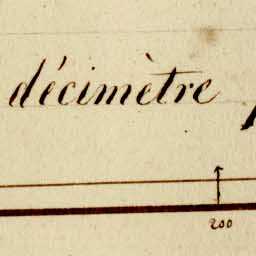 décimètre
200